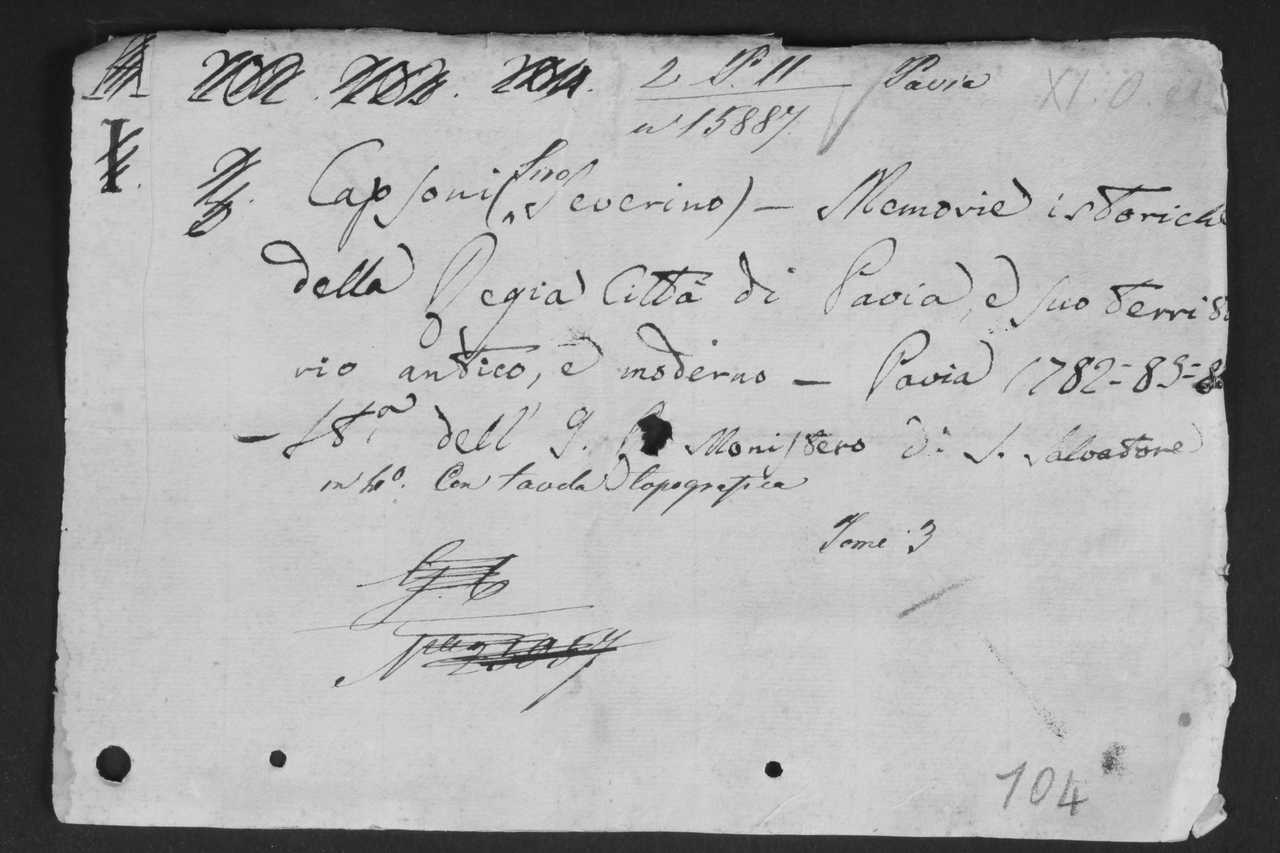 2 P. 11 Pavia XI. O.
n° 15887.
Capsoni (Siro Severino) — Memorie istoriche
della Regia Città di Pavia, e suo territo
rio antico, e moderno — Pavia 1782=85=
— dell' Monistero di S. Salvatore
in 4°. Con tavola topografica
Tome. 3
104